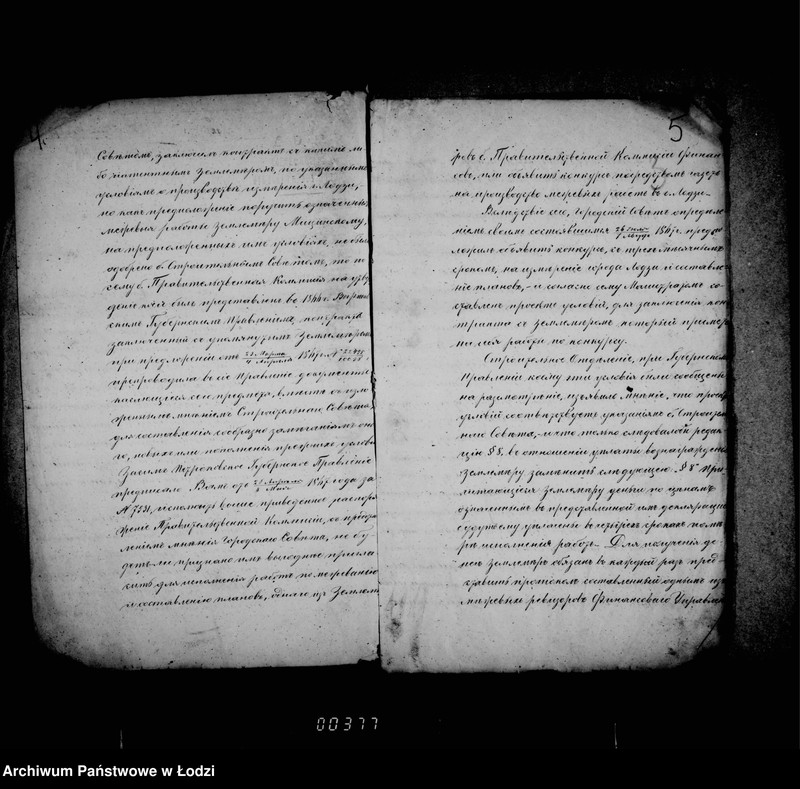 4.
Совѣтомъ, заключить контрактъ съ какимъ ли
бо частнымъ Землемѣромъ, по указаннымъ
условіямъ о производствѣ измѣренія г. Лодзи,
но какъ предположеніе поручить означенныя
мѣровыя работы Землемѣру
на предположенныхъ имъ условіяхъ, не было
одобрено б. Строительнымъ Совѣтомъ, то по
сему б. Правительственная Коммисія на утвер
жденіе коей былъ представленъ въ 1866 г. Варшав
скимъ Губернскимъ Правленіемъ, контрактъ
заключенный съ упомянутымъ Землемѣромъ
при предложеніи отъ 23 Марта / 4 Апрѣля 1867 г. №
препроводила въ сіе Правленіе документы
касающіеся сего предмета, вмѣстѣ съ изло
женнымъ мнѣніемъ Строительнаго Совѣта,
для составленія сообразно замѣчаніямъ он
го, новыхъ или пополненія прежнихъ условій
Засимъ Петроковское Губернское Правленіе
предписало Вамъ отъ 1867 года за
№ 7521, исполнить выше приведенное распоря
женіе Правительственной Коммисіи, съ предъя
вленіемъ мнѣнія Городскаго Совѣта, не бу
детъ ли признано имъ выгоднѣе пригла
сить для исполненія работъ по измѣренію
и составленію плановъ, одного изъ Землемѣ
5
ровъ б. Правительственной Коммисіи Финан
совъ, или объявить конкурсъ посредствомъ газетъ
на производство мѣровыхъ работъ въ г. Лодзи.
Вслѣдствіе сего, Городской Совѣтъ опредѣле
ніемъ своимъ состоявшимся 1867 г. предпо
ложилъ объявить конкурсъ, съ трехъ мѣсячнымъ
срокомъ, на измѣреніе города Лодзи и составле
ніе плановъ, и согласно сему Магистратомъ со
ставленъ проектъ условій, для заключенія кон
тракта съ землемѣромъ который приметъ
на себя работы по конкурсу.
Строительное Отдѣленіе, при Губернскомъ
Правленіи коему эти условія были сообщены
на разсмотрѣніе, изъявило мнѣніе, что проектъ
условій соотвѣтствуетъ указаніямъ б. Строитель
наго Совѣта, и что только слѣдовало бы редак
цію § 8, въ отношеніи уплаты вознагражденія
Землемѣру замѣнить слѣдующею: § 8 При
читающіяся Землемѣру деньги по цѣнамъ
означеннымъ въ представленной имъ деклараціи
будутъ ему уплачены въ четырехъ срокахъ по мѣ
рѣ исполненія работъ. Для полученія де
негъ Землемѣръ обязанъ въ каждый разъ пред
ставить протоколъ составленный однимъ изъ
мѣровыхъ ревизоровъ Финансоваго Управле
00377
Archiwum Państwowe w Łodzi